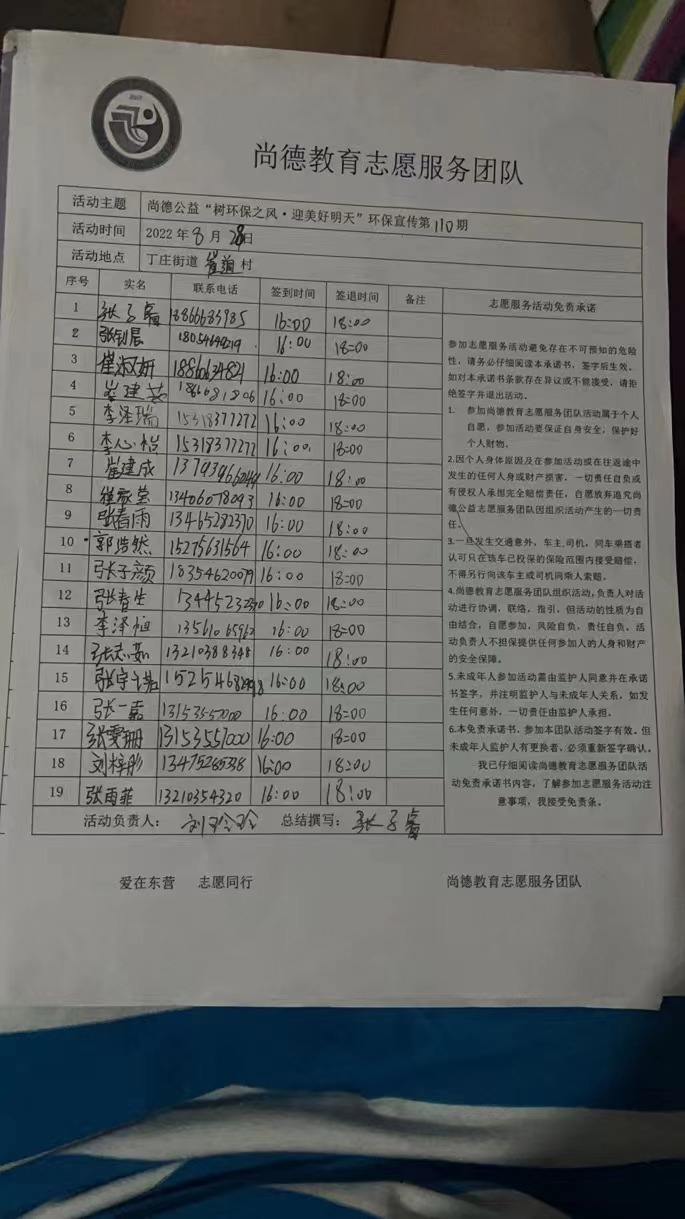 尚德教育志愿服务团队
活动主题 尚德公益“树环保之风·迎美好明天”环保宣传第110期
活动时间 2022年8月28日
活动地点 丁庄街道 村
序号 实名 联系电话 签到时间 签退时间 备注 志愿服务活动免责承诺
1 张子睿 18866683985 16:00 18:00
2 张钊晨 16:00 18:00
3 崔淑妍 16:00 18:00
4 崔建芸 16:00 18:00
5 李泽瑞 15318377272 16:00 18:00
6 李心怡 15318377272 16:00 18:00
7 崔建成 16:00 18:00
8 13406078093 16:00 18:00
9 张春雨 13465282370 16:00 18:00
10 郭浩然 15275631564 16:00 18:00
11 张子颜 18354620079 16:00 18:00
12 张春生 16:00 18:00
13 李泽恒 13561065962 16:00 18:00
14 张志茹 13210388348 16:00 18:00
15 16:00 18:00
16 张一嘉 13153557000 16:00 18:00
17 张雯珊 13153551000 16:00 18:00
18 刘梓彤 13475285338 16:00 18:00
19 张雨菲 13210354320 16:00 18:00
参加志愿服务活动避免存在不可预知的危险
性，请务必仔细阅读本承诺书，签字后生效。
如对本承诺书条款存在异议或不能接受，请拒
绝签字并退出活动。
1. 参加尚德教育志愿服务团队活动属于个人
自愿，参加活动要保证自身安全，保护好
个人财物。
2.因个人身体原因及在参加活动或在往返途中
发生的任何人身或财产损害，一切责任自负或
有侵权人承担完全赔偿责任，自愿放弃追究尚
德公益志愿服务团队因组织活动产生的一切责
任。
3.一旦发生交通意外，车主、司机，同车乘搭者
认可只在该车已投保的保险范围内接受赔偿，
不得另行向该车主或司机同乘人索赔。
4.尚德教育志愿服务团队组织活动，负责人对活
动进行协调，联络，指引，但活动的性质为自
由结合，自愿参加，风险自负，责任自负。活
动负责人不担保提供任何参加人的人身和财产
的安全保障。
5.未成年人参加活动需由监护人同意并在承诺
书签字，并注明监护人与未成年人关系，如发
生任何意外，一切责任由监护人承担。
6.本免责承诺书，参加本团队活动签字有效。但
未成年人监护人有更换者，必须重新签字确认。
我已仔细阅读尚德教育志愿服务团队活
动免责承诺书内容，了解参加志愿服务活动注
意事项，我接受免责条。
活动负责人： 刘玲玲 总结撰写： 张子睿
爱在东营 志愿同行 尚德教育志愿服务团队